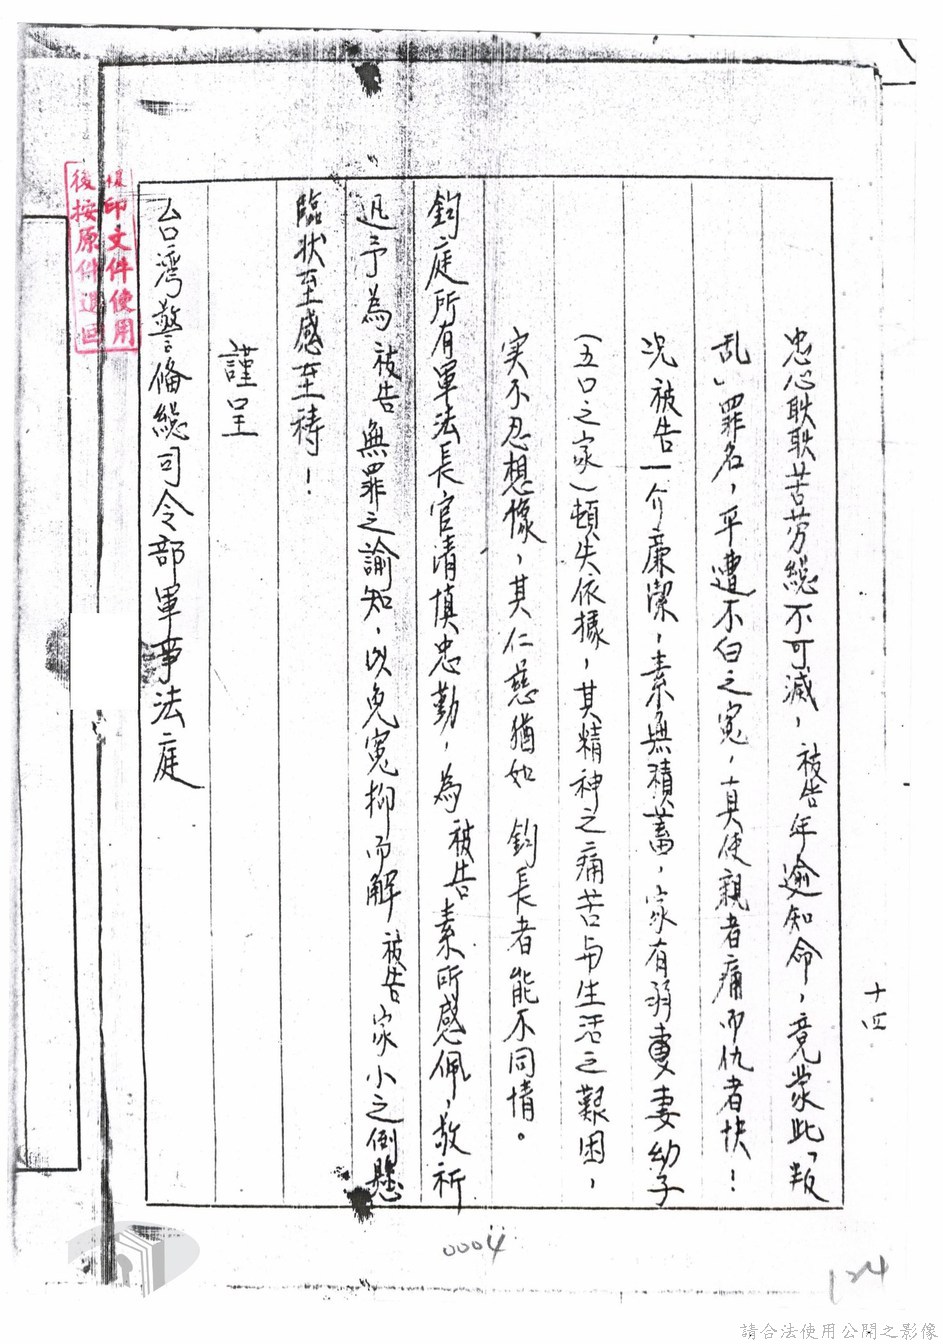 十四
忠心耿耿苦劳縂不可滅，被告年逾知命，竟蒙此「叛
乱」罪名，平遭不白之寃，真使親者痛而仇者快！
况被告一介廉潔，素無積蓄，家有弱妻幼子
（五口之家）頓失依據，其精神之痛苦与生活之艱困，
実不忍想像，其仁慈猶如 鈞長者能不同情。
鈞庭所有軍法長官清慎忠勤，為被告素所感佩，敬祈
迅予為被告無罪之諭知，以免寃抑而解被告家小之倒懸
臨状至感至祷！
謹呈
台灣警俻縂司令部軍事法庭
印文件使用
後按原件退回
0004
124
請合法使用公開之影像